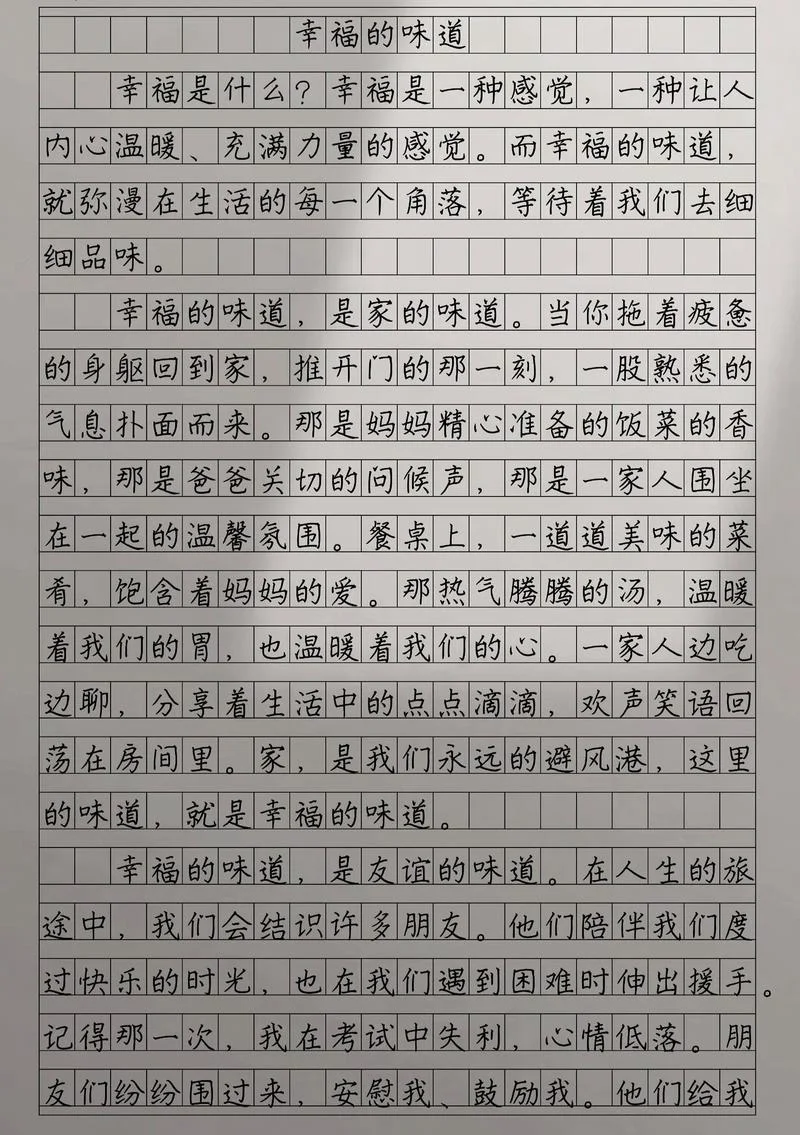 幸福的味道
幸福是什么?幸福是一种感觉,一种让人
内心温暖、充满力量的感觉。而幸福的味道,
就弥漫在生活的每一个角落,等待着我们去细
细品味。
幸福的味道,是家的味道。当你拖着疲惫
的身躯回到家,推开门的那一刻,一股熟悉的
气息扑面而来。那是妈妈精心准备的饭菜的香
味,那是爸爸关切的问候声,那是一家人围坐
在一起的温馨氛围。餐桌上,一道道美味的菜
肴,饱含着妈妈的爱。那热气腾腾的汤,温暖
着我们的胃,也温暖着我们的心。一家人边吃
边聊,分享着生活中的点点滴滴,欢声笑语回
荡在房间里。家,是我们永远的避风港,这里
的味道,就是幸福的味道。
幸福的味道,是友谊的味道。在人生的旅
途中,我们会结识许多朋友。他们陪伴我们度
过快乐的时光,也在我们遇到困难时伸出援手。
记得那一次,我在考试中失利,心情低落。朋
友们纷纷围过来,安慰我、鼓励我。他们给我